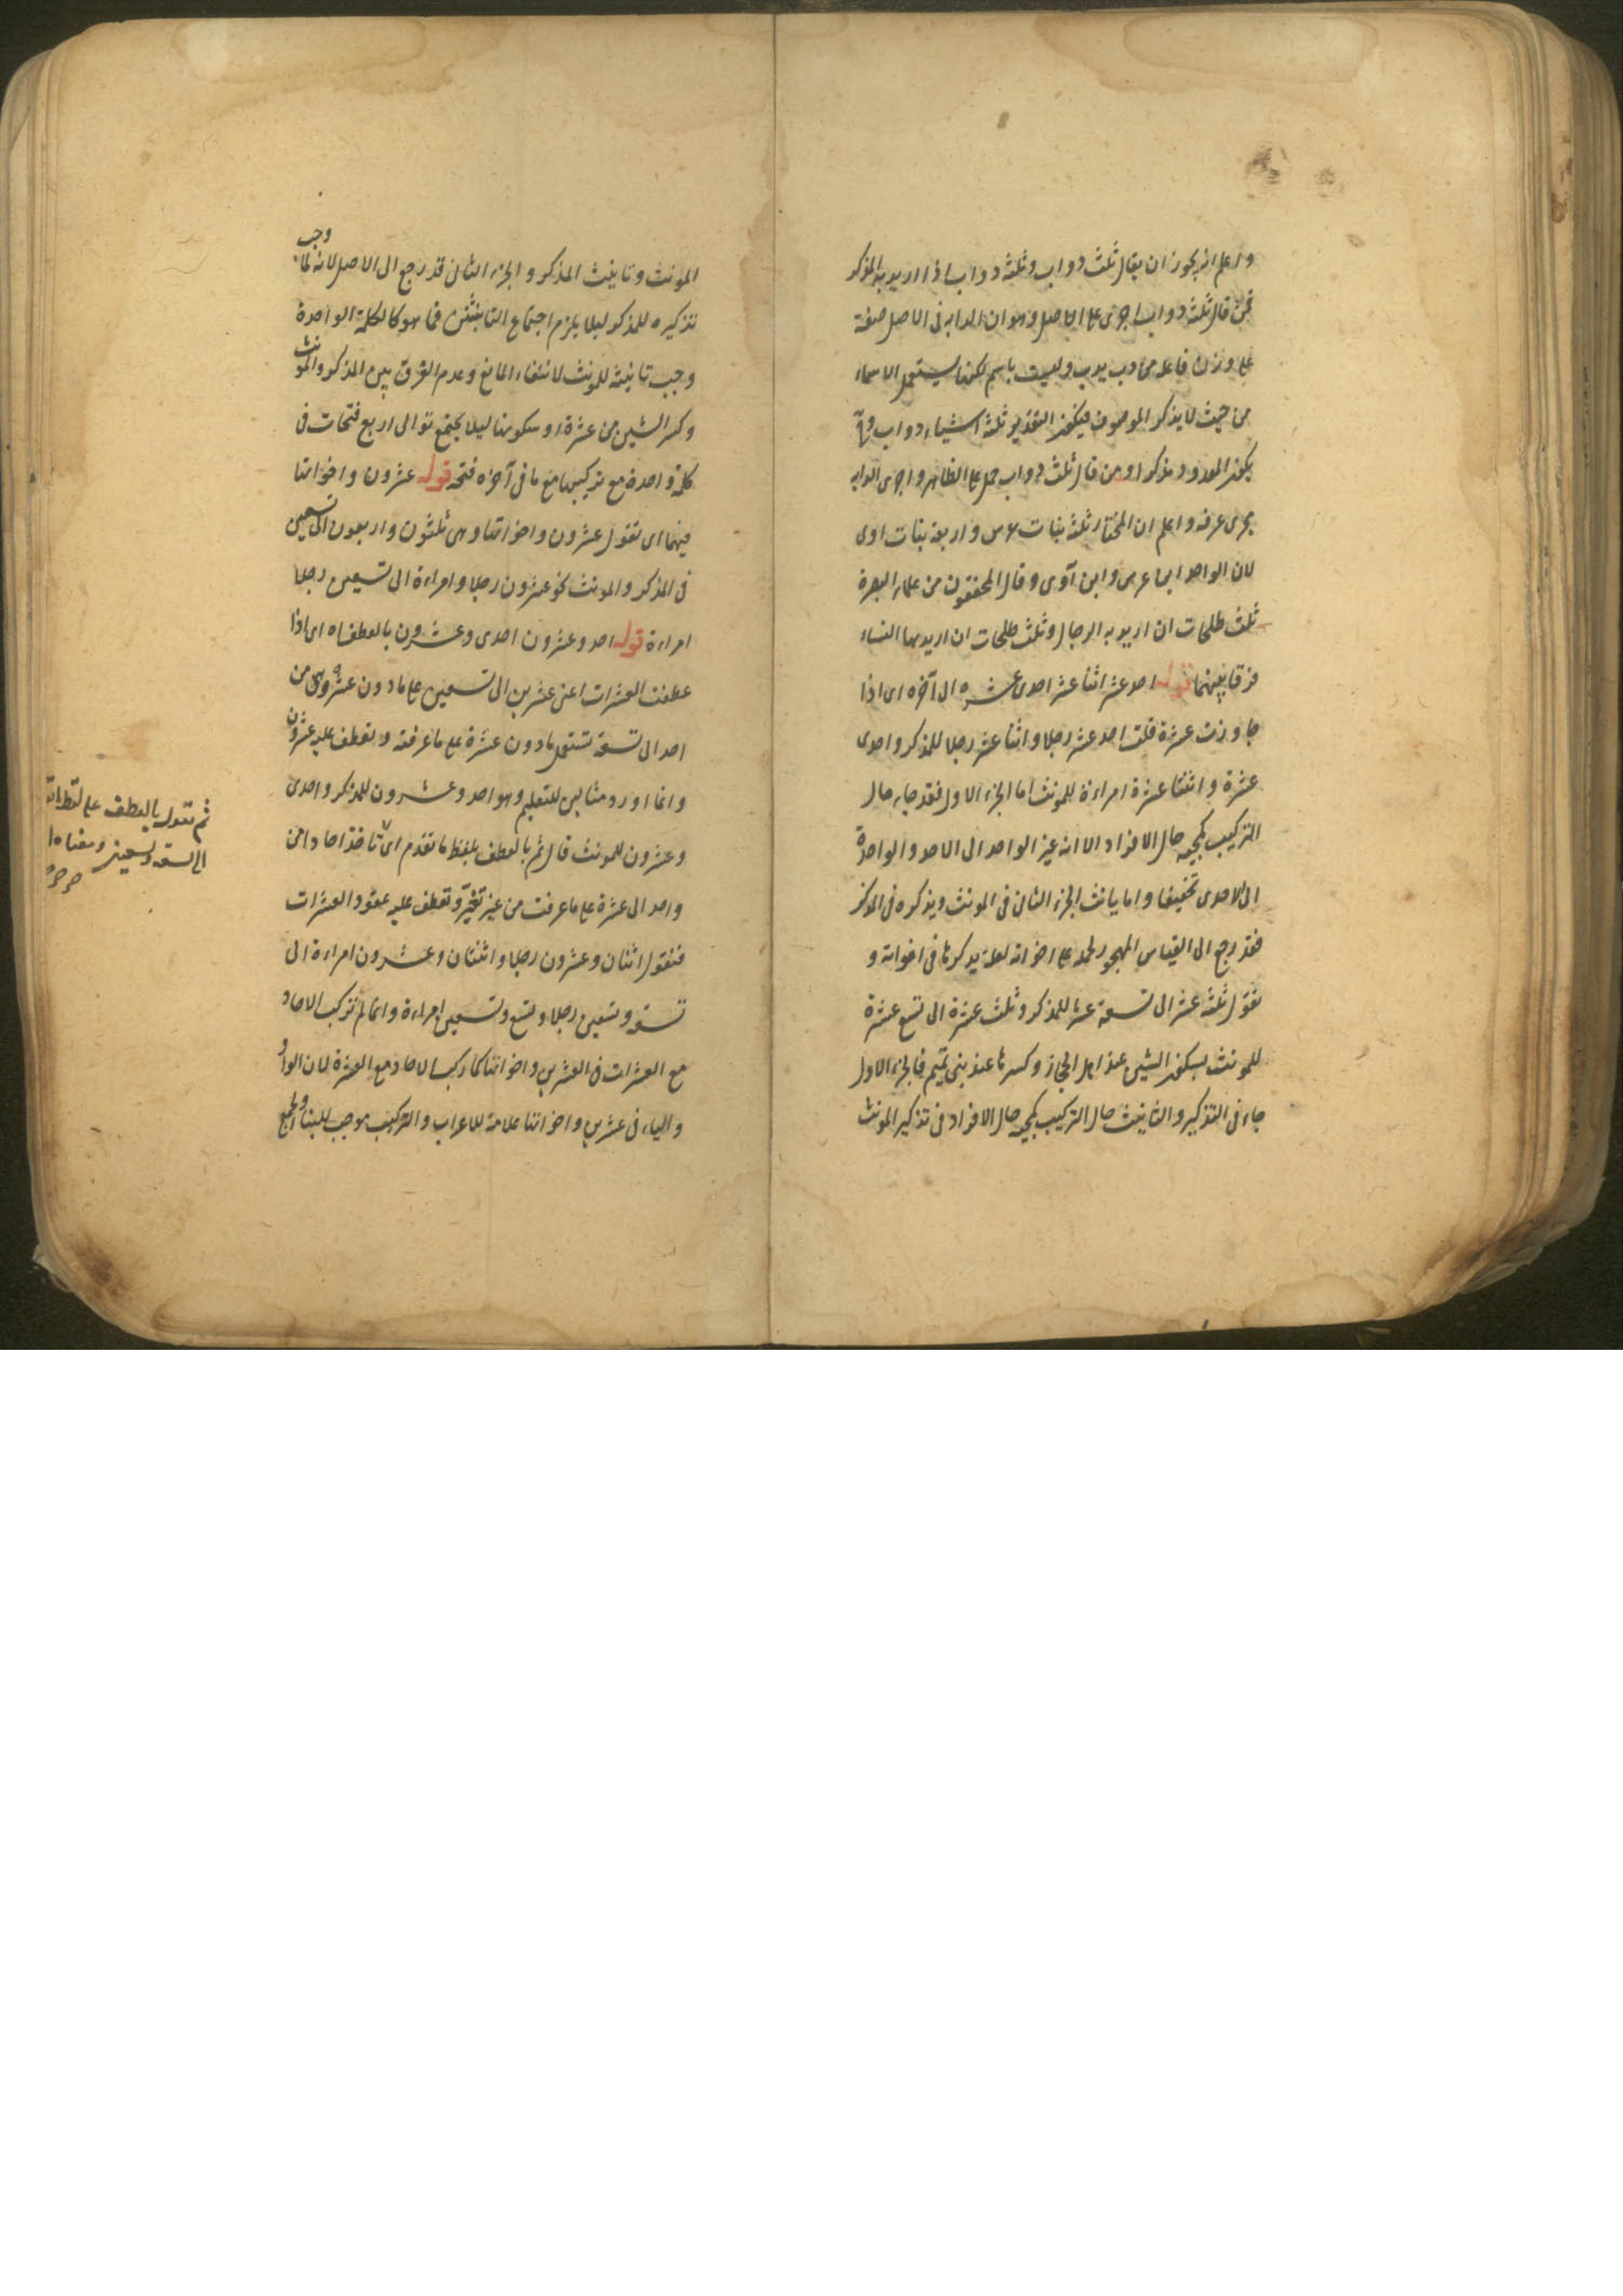 واعلم انه يجوز ان يقال ثلث دواب وثلثة دواب اذا اريد به المذكر
فمن قال ثلثة دواب اجرى على الاصل وهو ان الدابه فى الاصل صفة
على وزن فاعلة من دب يدب وليست باسم لكنها يستعمل الاسماء
من حيث لا يذكر الموصوف فيكون التقدير ثلثة اشياء دواب و
يكون المعدود مذكورا ومن قال ثلث دواب حمل على الظاهر واجرى الدابه
مجرى عرفه واعلم ان المختار ثلثة بنات عرس واربعة بنات اوى
لان الواحد ابن عرس وابن آوى وقال المحققون من علماء البصرة
ثلث طلحات ان اريد به الرجال وثلث طلحات ان اريد بها النساء
فرقا بينهما قوله احد عشر اثنا عشر احدى عشره الى آخره اى اذا
جاوزت عشرة قلت احد عشر رجلا واثنا عشر رجلا للمذكر واحدى
عشرة واثنتا عشرة امراءة للمونث اما الجزء الاول فقد جاء حال
التركيب كمجيه حال الافراد الا انه غير الواحد الى الاحد والواحدة
الى الاحدى تخفيفا واما يانث الجزء الثانى فى المونث ويذكره فى المذكر
فقد رجع الى القياس المهجور لحمله على اخواته لعلة يذكرها فى اخواته و
تقول ثلثة عشر الى تسعة عشر للمذكر وثلث عشرة الى تسع عشرة
للمونث بسكون الشين عند اهل الحجاز وكسرها عند بنى تميم فالجزء الاول
جاء فى التذكير والتانيث حال التركيب كمجيه حال الافراد فى تذكير المونث
المونث وتانيث المذكر والجزء الثانى قد رجع الى الاصل لانه لما وجب
تذكيره للمذكر ليلا يلزم اجتماع التانيثين فيما هو كالكلمة الواحدة
وجب تانيثه للمونث لانتفاء المانع وعدم الفرق بين المذكر والمونث
وكسر الشين من عشرة او سكونها ليلا يجتمع توالى اربع فتحات فى
كلمة واحدة مع تركيبها مع ما فى آخره فتحة قوله عشرون واخواتها
فيهما اى تقول عشرون واخواتها وهى ثلثون واربعون الى تسعين
فى المذكر والمونث نحو عشرون رجلا وامراءة الى تسعين رجلا
امراءة قوله احد وعشرون احدى وعشرون بالعطف اه اى اذا
عطفت العشرات اعنى عشرين الى تسعين على ما دون عشرة وهى من
احد الى تسعة تستعمل ما دون عشرة على ما عرفته وتعطف عليه عشرون
وانما اورد مثالين للتعليم وهو احد وعشرون للمذكر واحدى
وعشرون للمونث قال ثم بالعطف بلفظ ما تقدم اى تاخذ احادا من
واحد الى عشرة على ما عرفت من غير تغير وتعطف عليه عقود العشرات
فتقول اثنان وعشرون رجلا واثنتان وعشرون امراءة الى
تسعة وتسعين رجلا وتسع وتسعين امراءة وانما لم تركب الاحاد
مع العشرات فى العشرين واخواتها كما ركب الاحاد مع العشرة لان الواو
والياء فى عشرين واخواتها علامة للاعراب والتركيب موجب للبناء والجمع
ثم تقول بالعطف على لفظ
الى تسعة وتسعين ومعناه